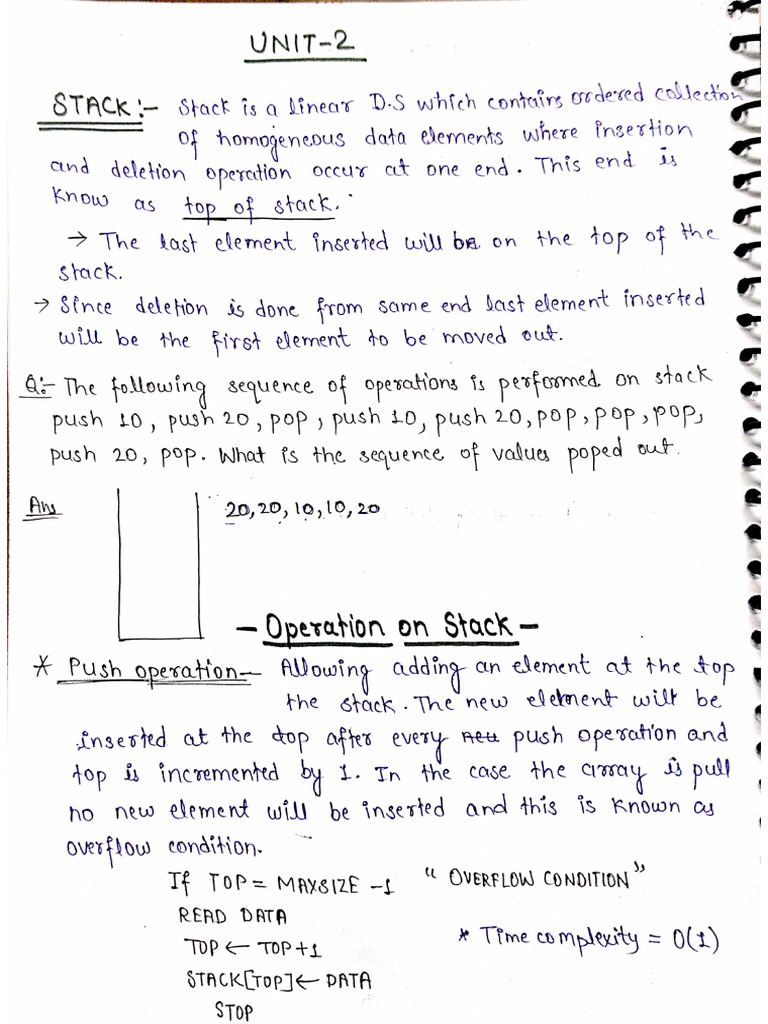 UNIT-2
STACK :- Stack is a linear D.S which contains ordered collection
of homogeneous data elements where insertion
and deletion operation occur at one end. This end is
know as top of stack.
→ The last element inserted will be on the top of the
stack.
→ Since deletion is done from same end last element inserted
will be the first element to be moved out.
Q:- The following sequence of operations is performed on stack
push 10, push 20, pop, push 10, push 20, pop, pop, pop,
push 20, pop. What is the sequence of values poped out.
Ans 20, 20, 10, 10, 20
- Operation on Stack -
* Push operation - Allowing adding an element at the top
the stack. The new element will be
inserted at the top after every push operation and
top is incremented by 1. In the case the array is pull
no new element will be inserted and this is known as
overflow condition.
If TOP = MAXSIZE -1 "OVERFLOW CONDITION"
READ DATA
TOP ← TOP+1
* Time complexity = O(1)
STACK[TOP] ← DATA
STOP